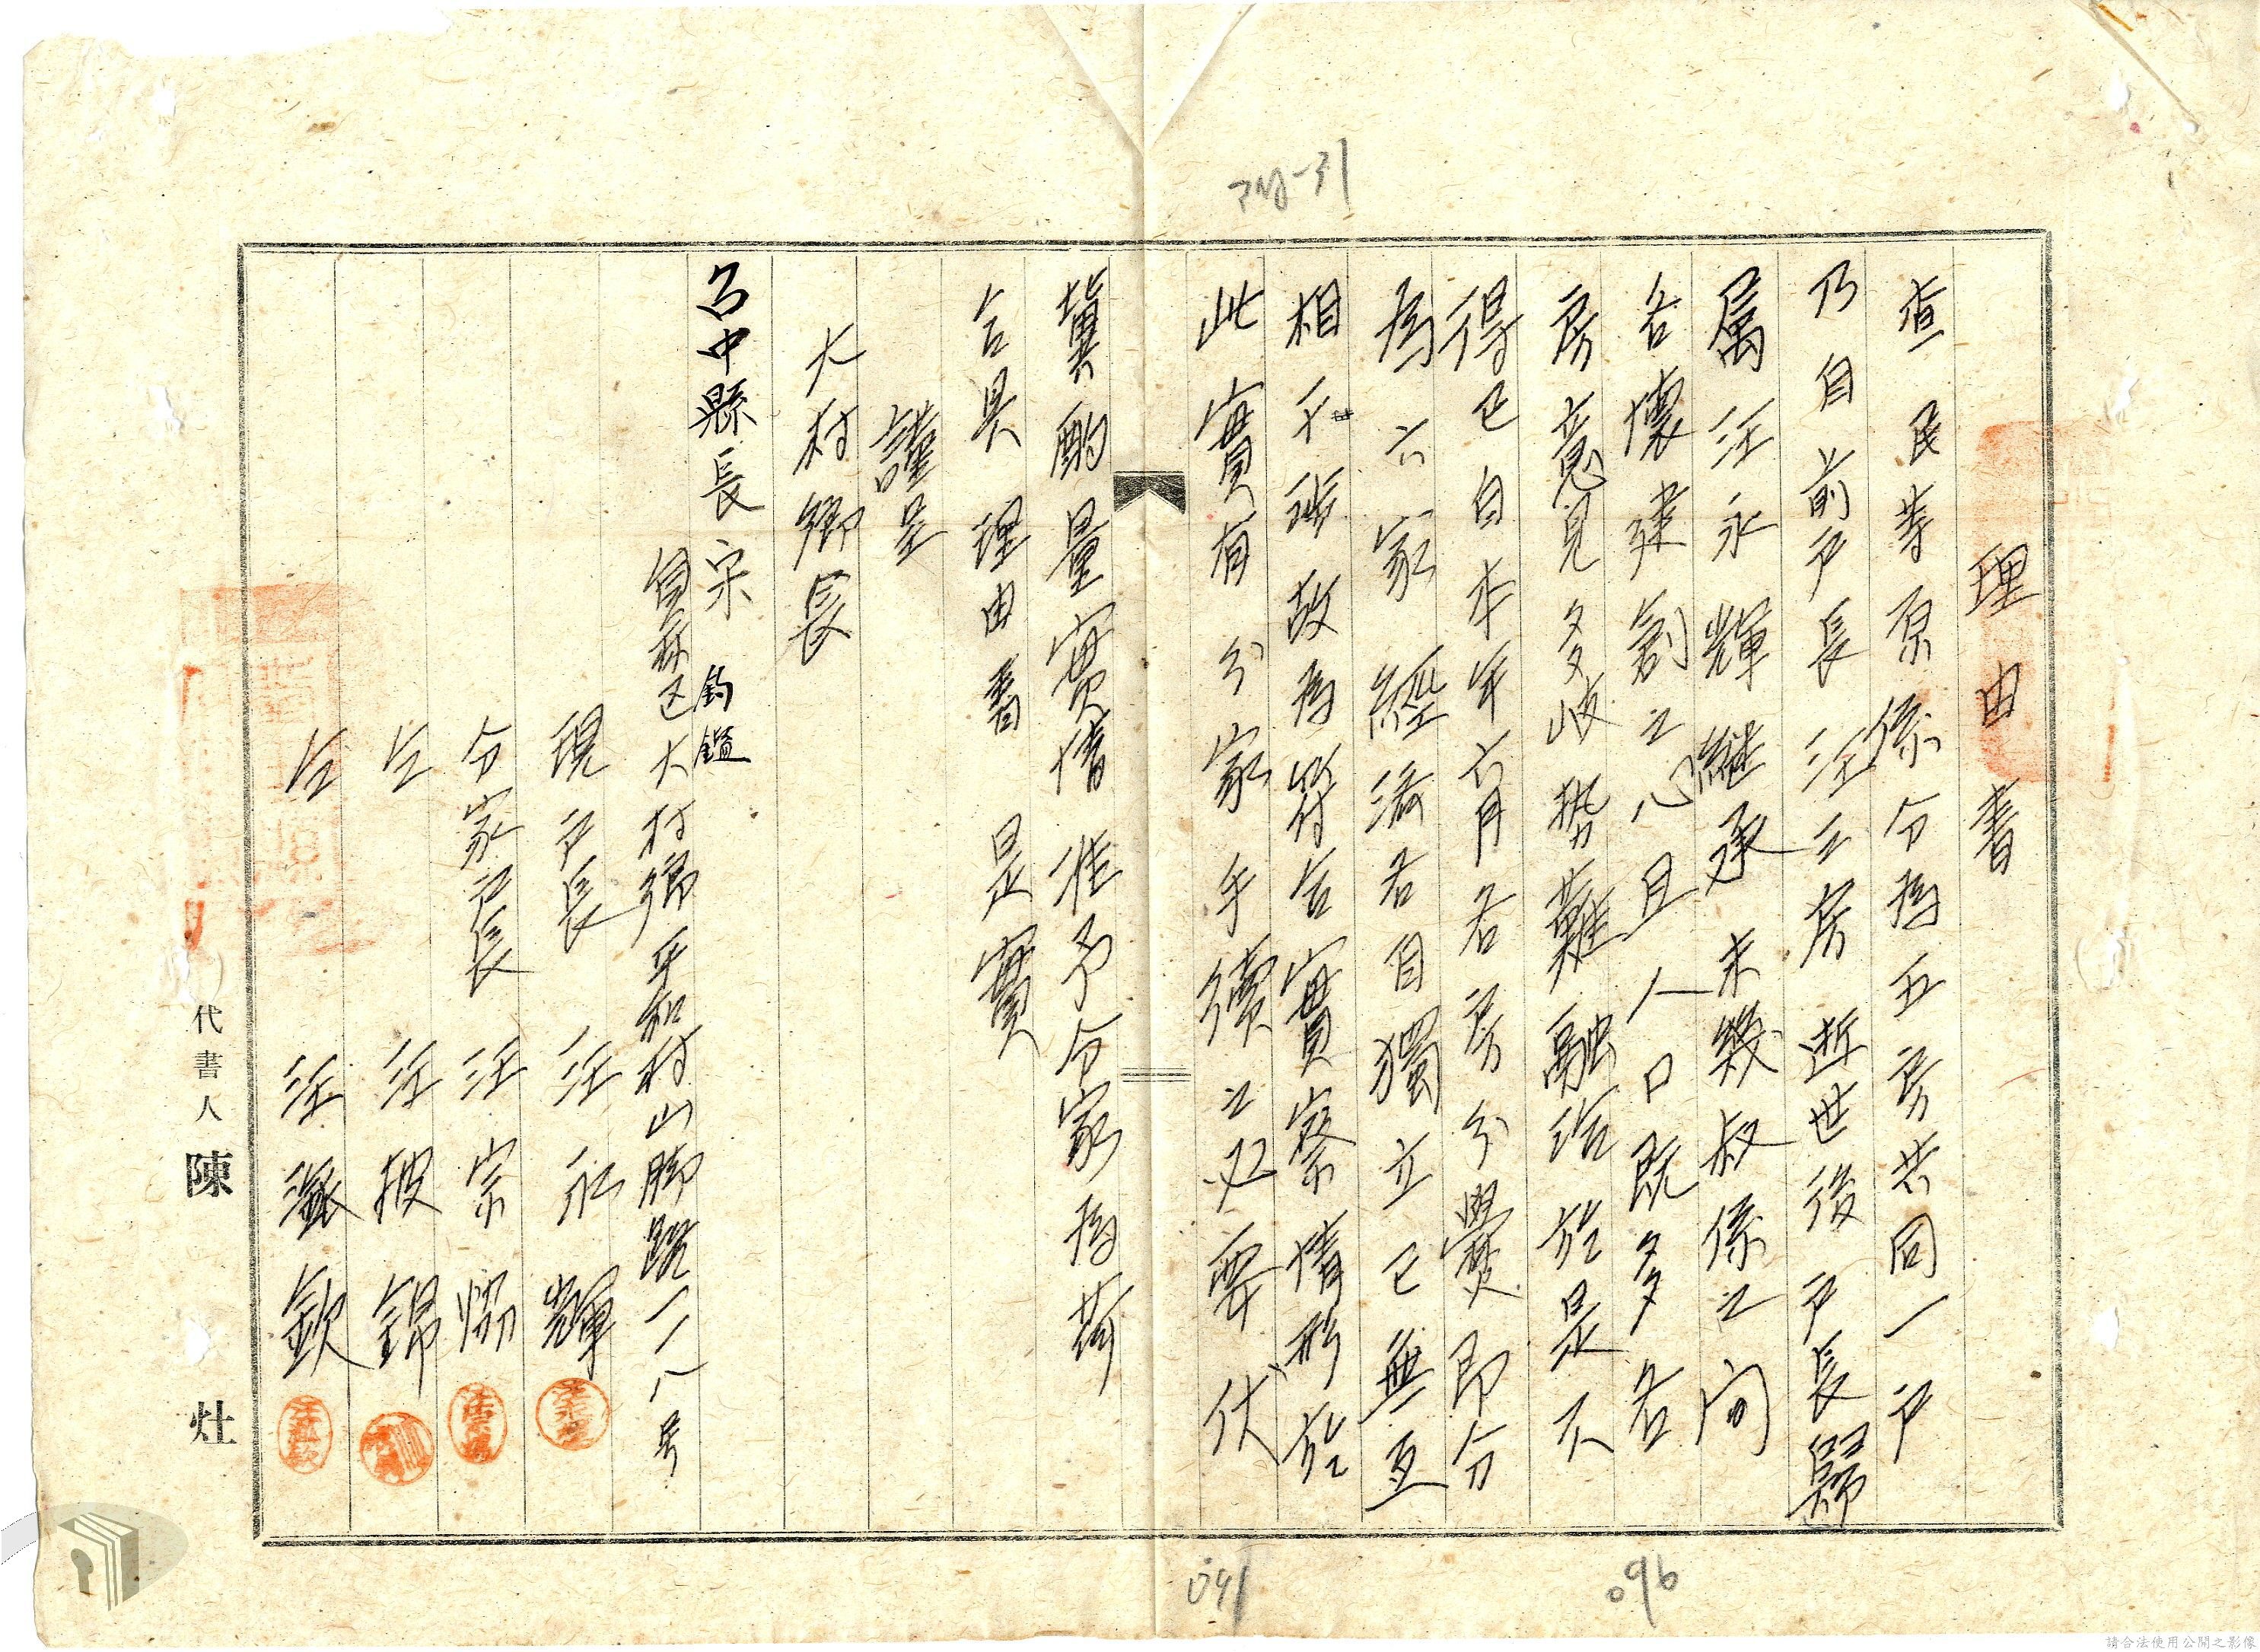 理由書
查民等原係分為五房共同一戶
乃自前戶長汪三房逝世後戶長歸
属汪永輝継承未幾叔係之间
各懷建創之心且人口既多各
房意見多岐势難融洽於是不
得已自本年六月各房分爨即分
為六家經済各自獨立已無互
相干涉故為符合實際情形於
此實有分家手續之必要伏
冀酌量實情准予分家為荷
合具理由書是實
謹呈
大村鄉長
台中縣長宗 鈞鑑
員林区大村鄉平和村山脚路一一八号
現戶長 汪永輝
分家戶長 汪宗
仝 汪披錦
仝 汪欽
代書人 陳 灶
091
096
請合法使用公開之影像